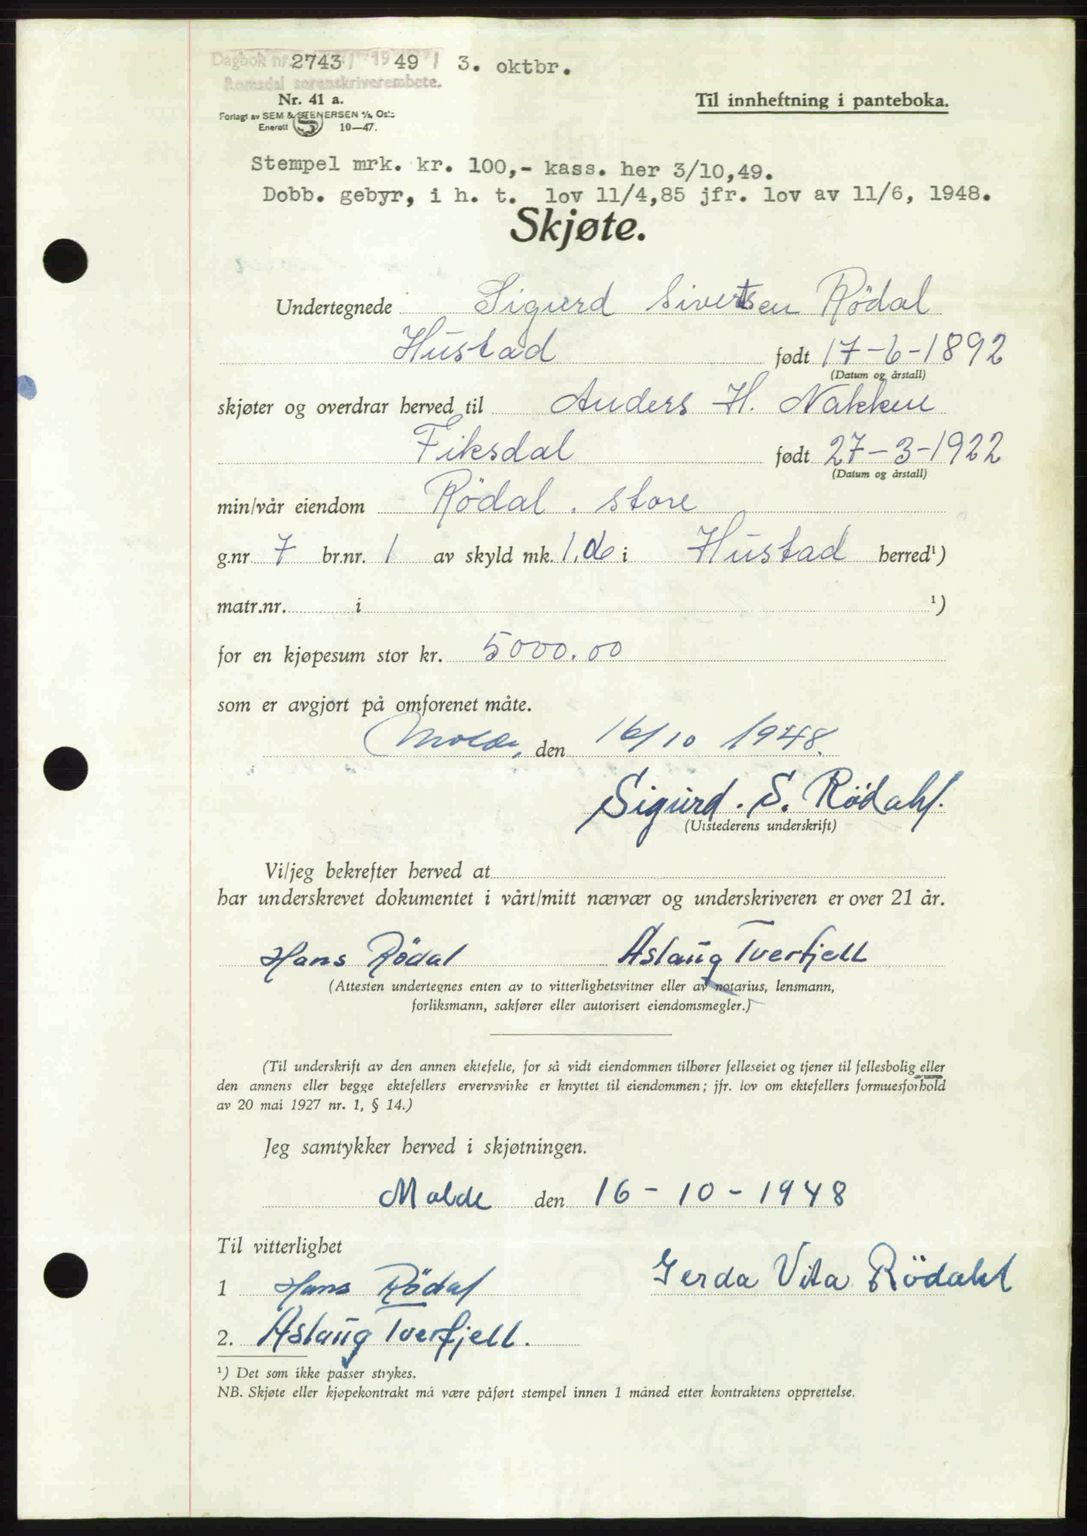 Dagbok nr. 2743 19 49 3. oktbr.
Romsdal sorenskriverembete.
Nr. 41 a.
Til innheftning i panteboka.
Forlagt av SEM & STENERSEN A/S, Oslo
Enerett 10—47.
Stempel mrk. kr. 100,- kass. her 3/10,49.
Dobb. gebyr, i h. t. lov 11/4,85 jfr. lov av 11/6, 1948.
Skjøte.
Undertegnede Sigurd Sivertsen Rödal
Hustad født 17-6-1892
(Datum og årstall)
skjøter og overdrar herved til Anders H. Nakken
Fiksdal født 27-3-1922
(Datum og årstall)
min/vår eiendom Rödal, store
g.nr 7 br.nr. 1 av skyld mk. 1.06 i Hustad herred¹)
matr.nr. i ¹)
for en kjøpesum stor kr. 5000.00
som er avgjort på omforenet måte.
Molde, den 16/10 1948.
Sigurd. S. Rödahl.
(Utstederens underskrift)
Vi/jeg bekrefter herved at
har underskrevet dokumentet i vårt/mitt nærvær og underskriveren er over 21 år.
Hans Rödal Aslaug Tverfjell
(Attesten undertegnes enten av to vitterlighetsvitner eller av notarius, lensmann,
forliksmann, sakfører eller autorisert eiendomsmegler.)
(Til underskrift av den annen ektefelle, for så vidt eiendommen tilhører felleseiet og tjener til fellesbolig eller
den annens eller begge ektefellers ervervsvirke er knyttet til eiendommen; jfr. lov om ektefellers formuesforhold
av 20 mai 1927 nr. 1, § 14.)
Jeg samtykker herved i skjøtningen.
Molde den 16-10-1948
Til vitterlighet
1 Hans Rödal Gerda Vita Rödahl
2. Aslaug Tverfjell.
¹) Det som ikke passer strykes.
NB. Skjøte eller kjøpekontrakt må være påført stempel innen 1 måned etter kontraktens opprettelse.